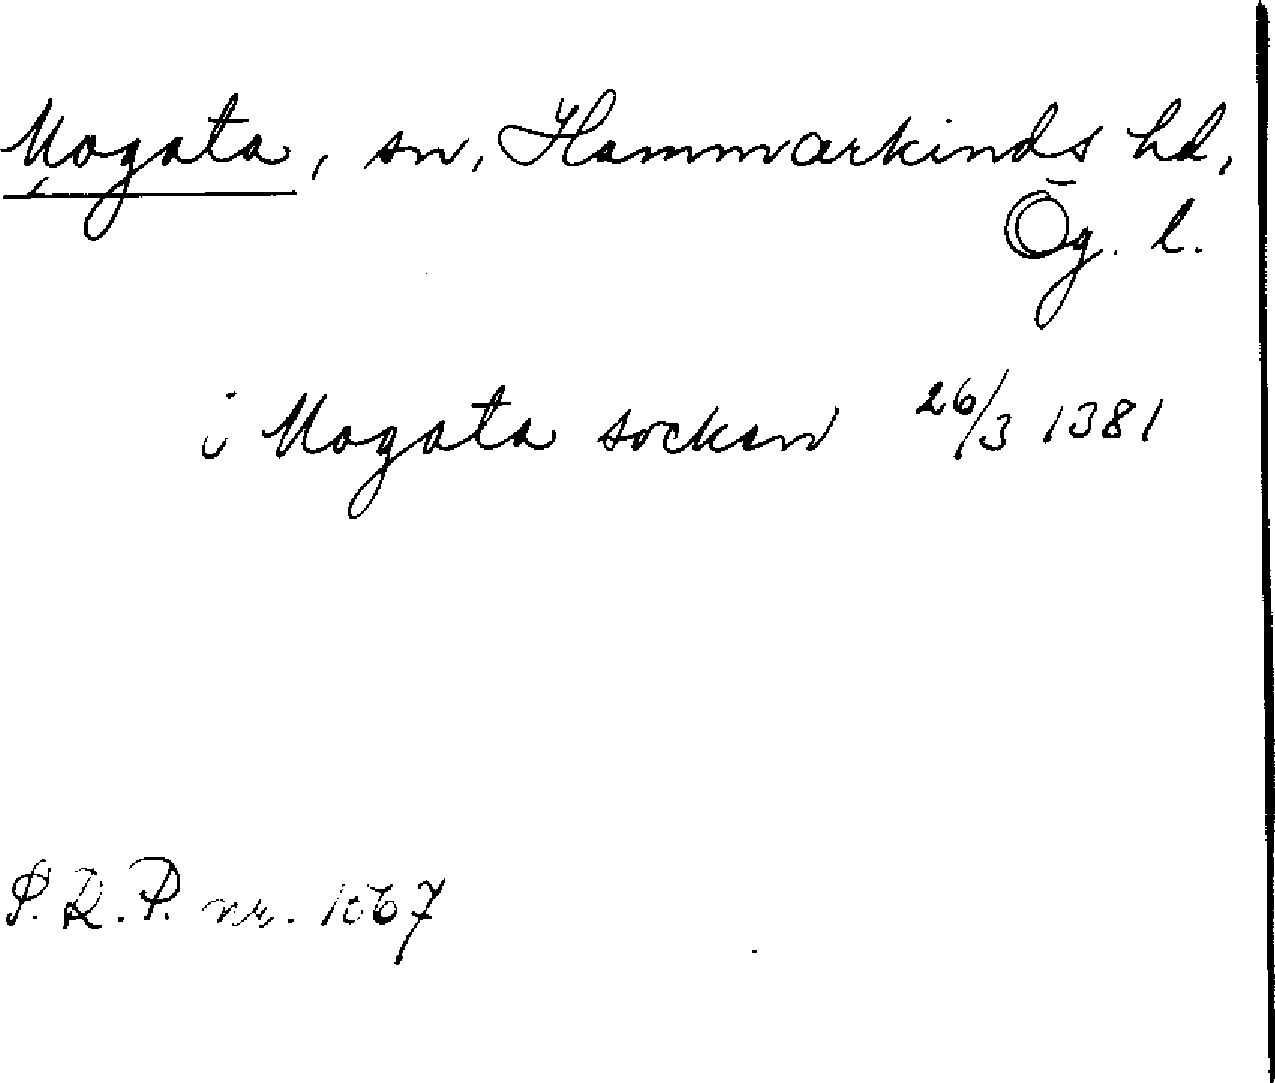 Mogata, sn, Hammarkinds hd,
Ög. l.
i Mogata socken 26/3 1381
S.R.P. nr.